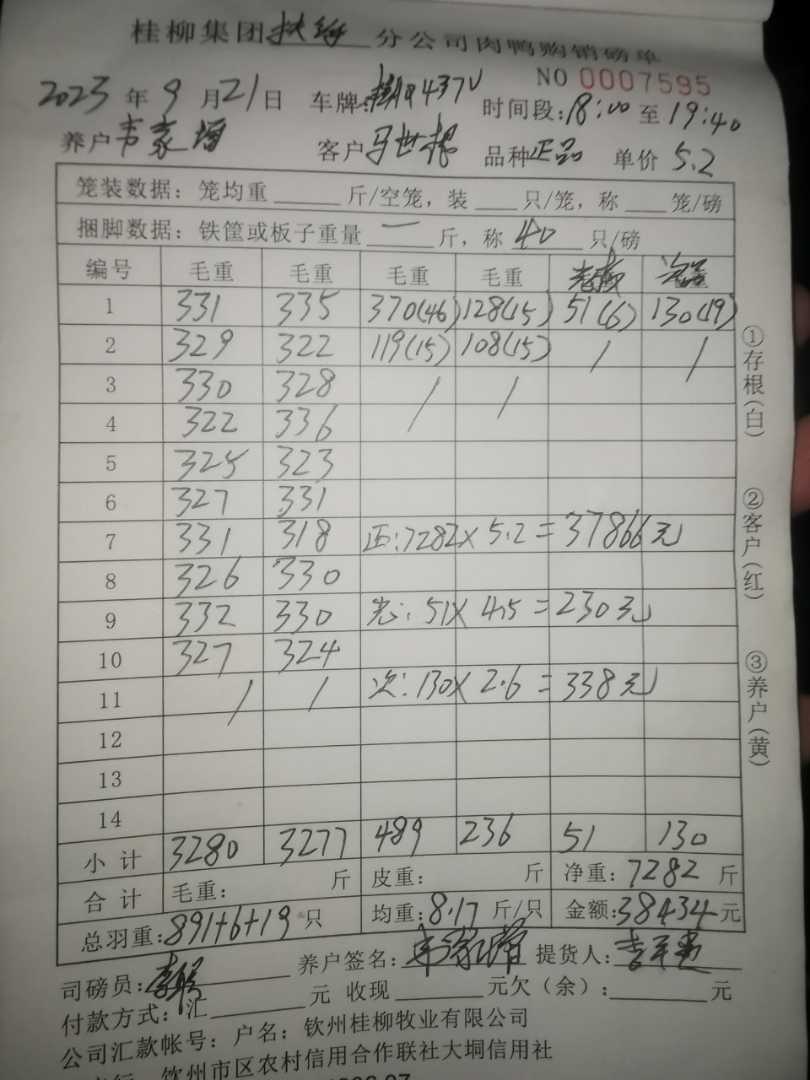 桂柳集团扶绥分公司肉鸭购销磅单
NO 0007595
2023年9月21日 车牌: 437U 时间段:18:00至19:40
养户 韦家增 客户 马世根 品种 正品 单价 5.2
笼装数据:笼均重 斤/空笼,装 只/笼,称 笼/磅
捆脚数据:铁筐或板子重量 一 斤,称 40 只/磅
编号 毛重 毛重 毛重 毛重
1 331 335 370(46) 128(15) 51(6) 130(19)
2 329 322 119(15) 108(15) / /
3 330 328 / /
4 322 336
5 325 323
6 327 331
7 331 318 正:7282×5.2=37866元
8 326 330
9 332 330 51×4.5=230元
10 327 324
11 / / 次:130×2.6=338元
12
13
14
小计 3280 3277 489 236 51 130
合计 毛重: 斤 皮重: 斤 净重:7282斤
总羽重:891+6+19只 均重:8.17斤/只 金额:38434元
司磅员: 养户签名: 韦家增 提货人:
付款方式:汇 元 收现 元欠(余): 元
公司汇款帐号:户名:钦州桂柳牧业有限公司
钦州市区农村信用合作联社大垌信用社
①存根(白)
②客户(红)
③养户(黄)